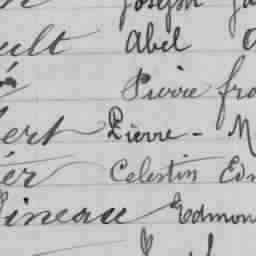 Joseph
ult Abel
é Pierre fra
bert Pierre - M
ér Celestin Edm
ineau Edmon